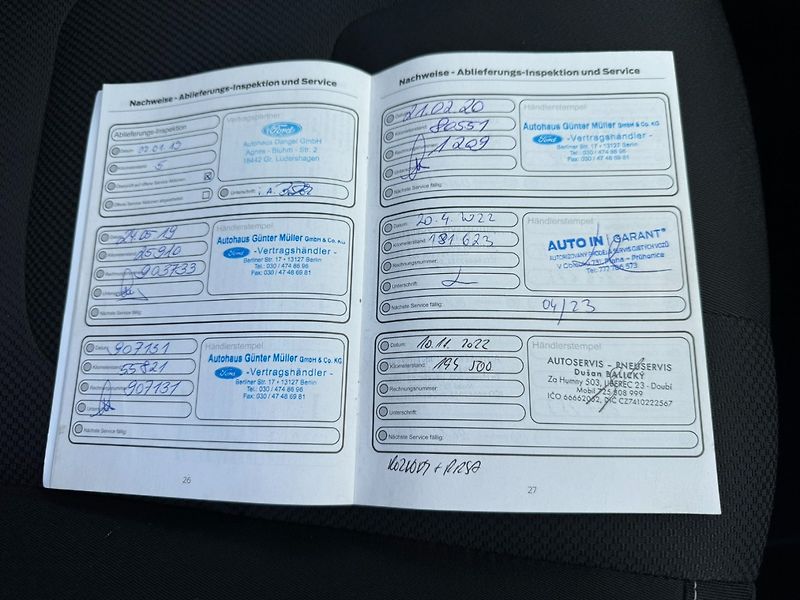 Nachweise - Ablieferungs-Inspektion und Service
Ablieferungs-Inspektion
Datum: 22.01.19
5
Übersicht auf offene Service Aktionen
Offene Service Aktionen abgearbeitet
Vertragspartner
Ford
Autohaus Dangel GmbH
Agnes - Bluhm - Str. 2
18442 Gr. Lüdershagen
Unterschrift: i.A.
Datum: 24.05.19
Kilometerstand: 25.910
Rechnungsnummer: 903733
Unterschrift:
Nächste Service fällig:
Händlerstempel
Autohaus Günter Müller GmbH & Co. KG
Ford -Vertragshändler-
Berliner Str. 17 • 13127 Berlin
Tel.: 030 / 474 86 96
Fax: 030 / 47 48 69 81
Datum: 907131
Kilometerstand: 55821
Rechnungsnummer: 907131
Unterschrift:
Nächste Service fällig:
Händlerstempel
Autohaus Günter Müller GmbH & Co. KG
Ford -Vertragshändler-
Berliner Str. 17 • 13127 Berlin
Tel.: 030 / 474 86 96
Fax: 030 / 47 48 69 81
26
Nachweise - Ablieferungs-Inspektion und Service
Datum: 21.02.20
Kilometerstand: 80551
Rechnungsnummer: 1209
Unterschrift:
Nächste Service fällig:
Händlerstempel
Autohaus Günter Müller GmbH & Co. KG
Ford -Vertragshändler-
Berliner Str. 17 • 13127 Berlin
Tel.: 030 / 474 86 96
Fax: 030 / 47 48 69 81
Datum: 20.4.2022
Kilometerstand: 181 623
Rechnungsnummer:
Unterschrift:
Nächste Service fällig: 04/23
Händlerstempel
AUTO IN GARANT
AUTORIZOVANÝ PRODEJ A SERVIS OJETÝCH VOZŮ
Praha - Průhonice
Tel: 777 786 573
Datum: 10.11.2022
Kilometerstand: 194 500
Rechnungsnummer:
Unterschrift:
Nächste Service fällig:
Händlerstempel
AUTOSERVIS - PNEUSERVIS
Dušan BALICKÝ
Za Humny 503, LIBEREC 23 - Doubí
Mobil 725 808 999
IČO 66662052, DIČ CZ7410222567
27